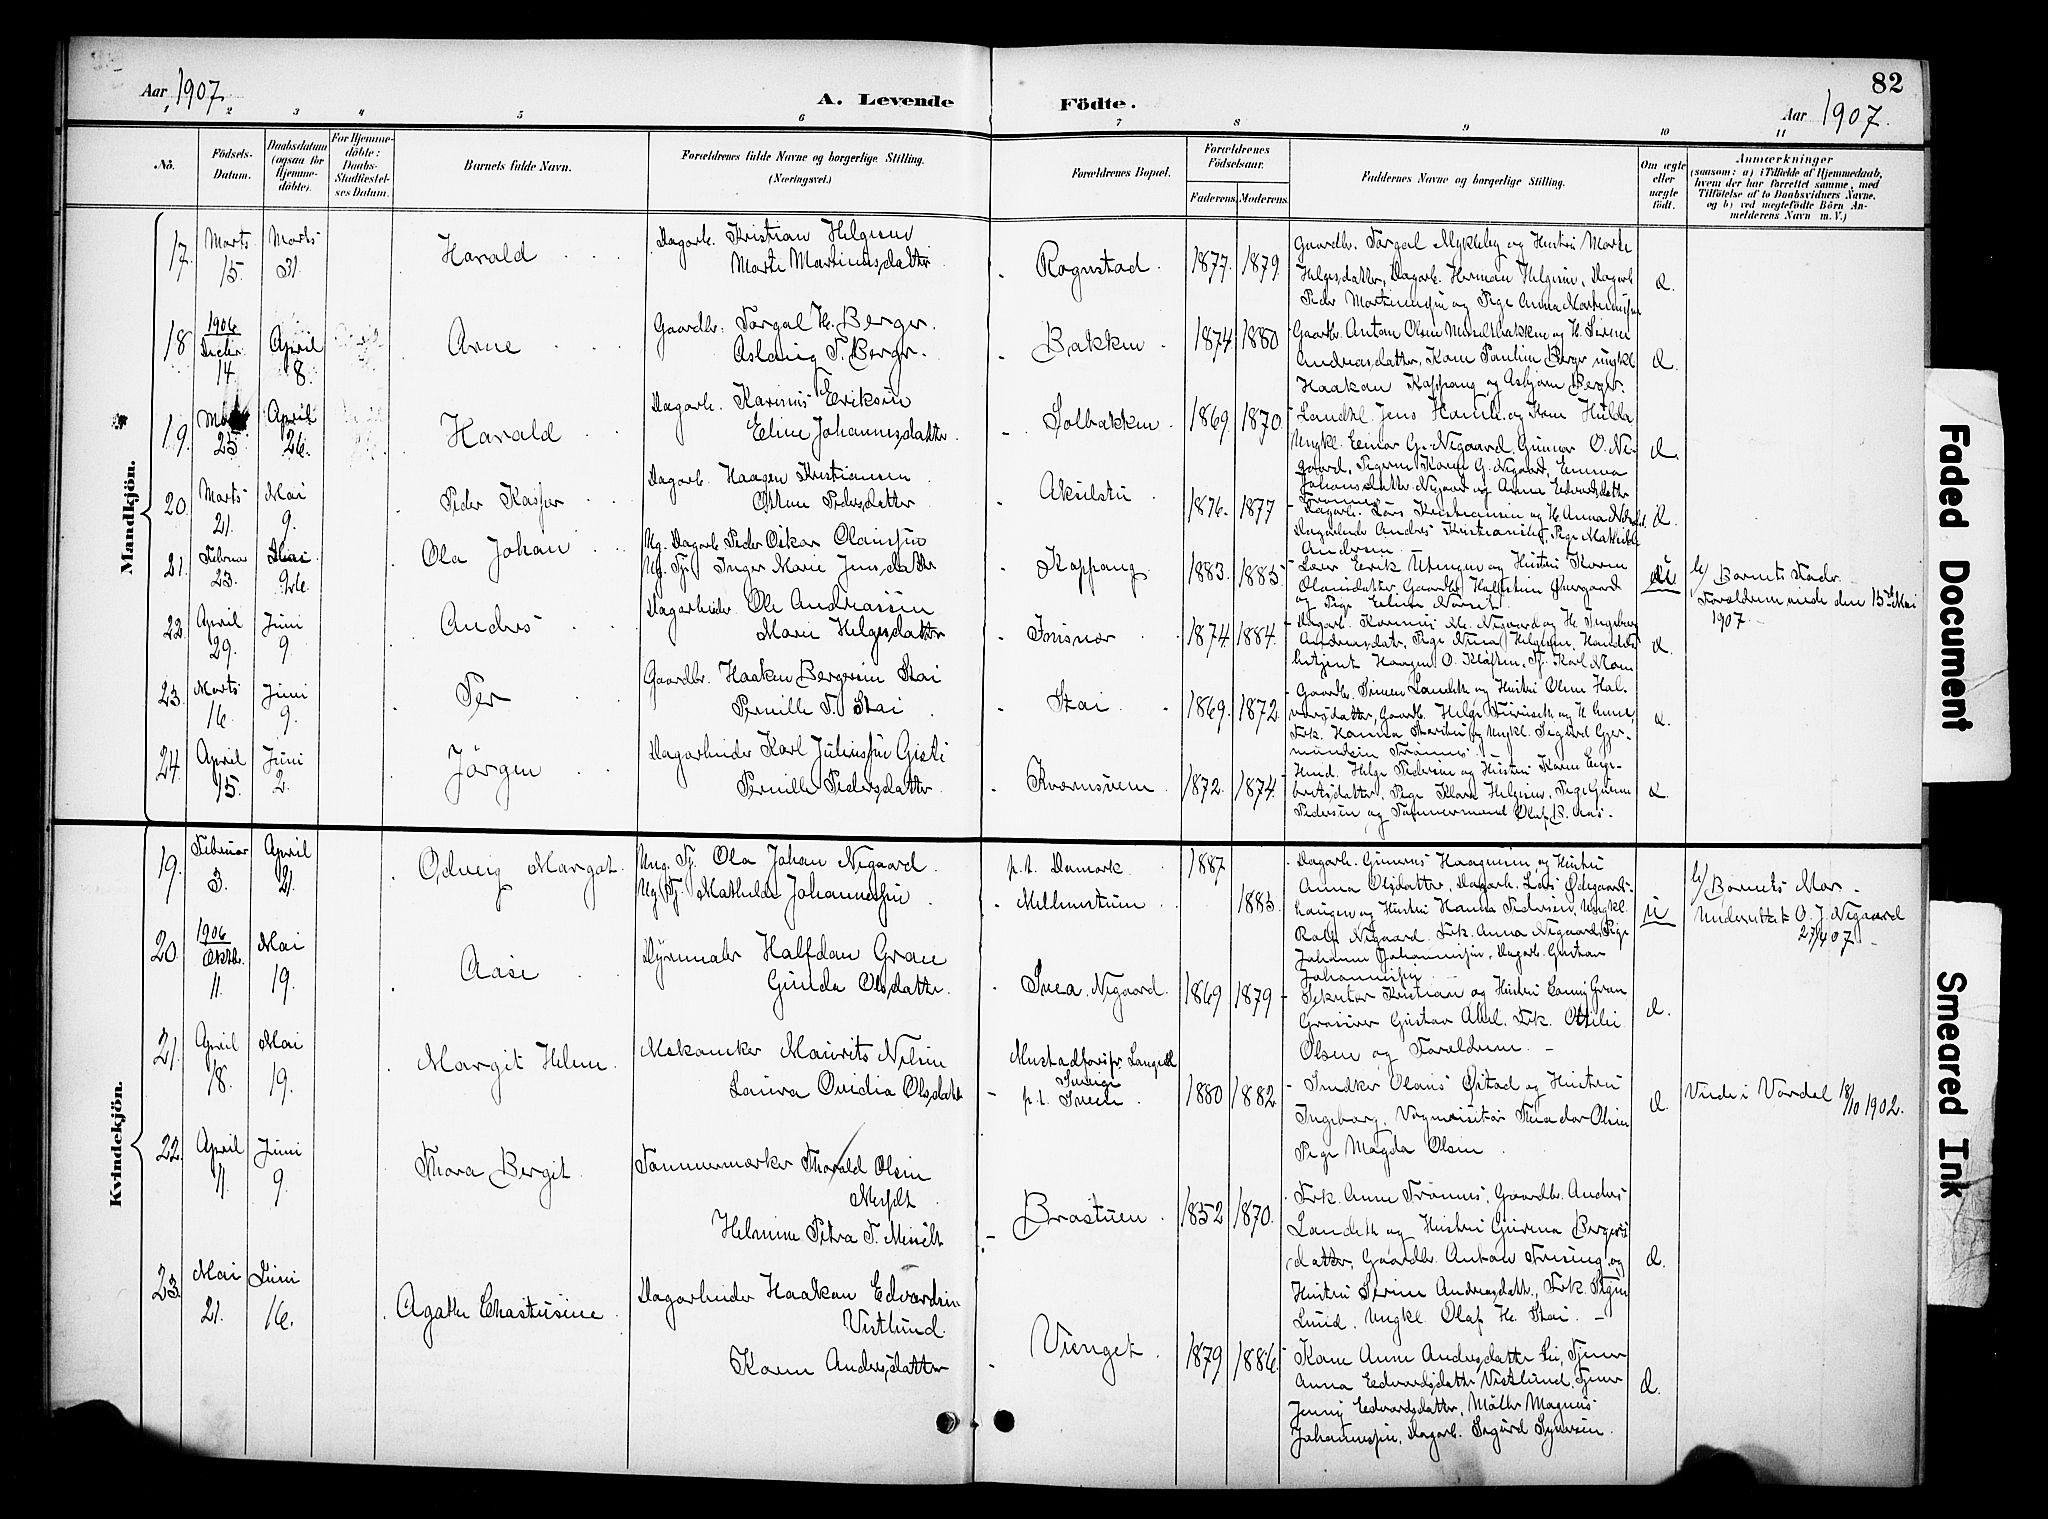 Aar 1907.
A. Levende Födte.
Aar 1907.
82
1 2 3 4 5 6 7 8 9 10 11
No.
Födsels-
Datum.
Daabsdatum
(ogsaa for
Hjemme-
döbte).
For Hjemme-
döbte:
Daabs-
Stadfæstel-
ses Datum.
Barnets fulde Navn.
Forældrenes fulde Navne og borgerlige Stilling.
(Næringsvei.)
Forældrenes Bopæl.
Forældrenes
Födselsaar.
Faderens.
Moderens.
Faddernes Navne og borgerlige Stilling.
Om ægte
eller
uægte
födt.
Anmærkninger
(saasom: a) i Tilfælde af Hjemmedaab,
hvem der har forrettet samme, med
Tilföielse af to Daabsvidners Navne,
og b) ved uegtefödte Börn An-
melderens Navn m. V.)
Mandkjön.
17 Marts 15. Marts 31. Harald
Dagarb. Kristian Helgesen
Marte Martinusdatter
Rognstad. 1877. 1879
Gaardbr. Torgal Mykleby og Hustru Marte
Helgesdatter, Dagarb. Herman Helgesen, Dagarb.
Peder Martinussen og Pige Anna Martinussen
æ.
18. 1906 Decbr. 14. April 8. Arne
Gaardbr. Torgal H. Berger.
Aslaug T. Berger.
Bakken 1874 1880
Gaardbr. Anton Olsen Messeltbakken og H. Serine
Andreasdatter, Kone Pauline Berger ungkl.
Haakan Koppang og Asbjørn Berger.
æ.
19. 25. April 26. Harald
Dagarb. Karinus Eriksen
Eline Johannesdatter.
Solbakken. 1869 1870
Landhl. Jens Hamle og Kone Hulda
Ungkl. Einar G. Nigaard, Gunnar O. Ni-
gaard, Pigerne Karen G. Nigaard, Emma
Johansdatter Nigaard og Anna Edvardsdatter
Trønnes.
æ.
20. Marts 21. Mai 9. Peder Kasper
Dagarb. Haagen Kristiansen
Othine Pedersdatter
Akselstu 1876. 1877
Dagarb. Lars Kristiansen og H. Anna
Dagarbeider Andres Kristiansen, Pige Mathilde
Andersen.
æ.
21. Februar 23. Mai 9de. Ola Johan
Ug. Dagarb. Peder Oskar Olaussen
Ug. Tj. Inger Marie Jensdatter
Koppang 1883. 1885
Laer Erik Utengen og Hustru Karen
Olausdatter Gaardbr. Halfstein Øvergaard
og Pige Eline Norset.
b/ Barnets Fader
Forældrene viede den 15de Mai
1907.
22. April 29. Juni 9 Anders
Dagarbeider Ole Andreassen
Marie Helgesdatter
1874 1884.
Dagarb. Karinus M. Nigaard og H. Ingeborg
Andreasdatr. Pige Nina Helgesen, Handels-
betjent Haagen O. Kløften, Tj. Karl Moen
æ.
23. Marts 16. Juni 9. Per
Gaardbr. Haaken Bergersen Stai
Pernille T. Stai
Stai 1869. 1872
Gaardbr. Simen Landeth og Hustru Oline Hal-
vorsdatter, Gaardb. Helge Furuseth og H. Anne,
Frk. Hanna og Ungkl. Sigurd Gjer-
mundsen Trønnes.
æ.
24. April 15. Juni 2. Jörgen
Dagarbeider Karl Juliussen Gisti
Pernille Pedersdatter.
Kværnsveen 1872. 1874.
Husd. Helge Pedersen og Hustru Karen Enge-
bretsdatter, Pige Klara Helgesen, Pige Gurine
Pedersen og Tømmermand Olaf B. Aas.
æ.
Kvindekjön.
19. Februar 3. April 21. Odveig Margot.
Ung. Tj. Ola Johan Nigaard.
Ug. Tj. Mathilde Johannessen
p.t. Danmark 1887
Mellemstuen 1883.
Dagarb. Gunerus Haagensen og Hustru
Anna Olsdatter, Dagarb. Lars Ødegaards-
haugen og Hustru Hanna Pedersen, Ungkl.
Rolf Nigaard. Frk. Anna Nigaard, Pige
Johanne Johannessen, Dagarb. Gustav
Johannessen
u
b/ Barnets Mor.
Underrettet O. J. Nigaard
27/4 07.
20. 1906 Oktbr. 11. Mai 19. Aase
Dyrmaler Halfdan Gran
Gunda Olsdatter.
Svea, Nigaard. 1869 1879
Kristian og Hustru Fanny Gran
Grosserer Gustav Abel. Frk. Ottilie
Olsen og Forældrene.
æ.
21. April 18. Mai 19. Margit Helene
Mekaniker Maurits Nilsen
Laura Ovidia Olsdatter
Mustadfors pr.
Sverige
p.t. Sveen 1880 1882
Snedker Olaus Øistad og Hustru
Ingeborg, Vognvisitør Teodor Olsen
Pige Magda Olsen
æ.
Viede i Værdal 18/10 1902.
22. April 11. Juni 9. Thora Bergit.
Tømmermærker Thorald Olsen
Messelt
Helmine Petra T. Messelt
Brastuen. 1852 1870.
Frk. Anne Trønnes, Gaardbr. Andres
Landeth og Hustru Gurina Bergers-
datter, Gaardbr. Anton Trøsing og
Hustru Serine Andreasdatter, Frk. Signe
Lund. Ungkl. Olaf H. Stai.
æ.
23. Mai 21. Juni 16. Agathe Chastusine
Dagarbeider Haakan Edvardsen
Vestlund.
Karen Andersdatter
Vienget. 1879 1886.
Kone Anne Andersdatter Lie, Tjener
Anna Edvardsdatter Vestlund, Tjener
Jenny Edvardsdatter, Møller Magnus
Johannessen, Dagarb. Sigurd Syversen.
æ.
Faded Document
Smeared Ink